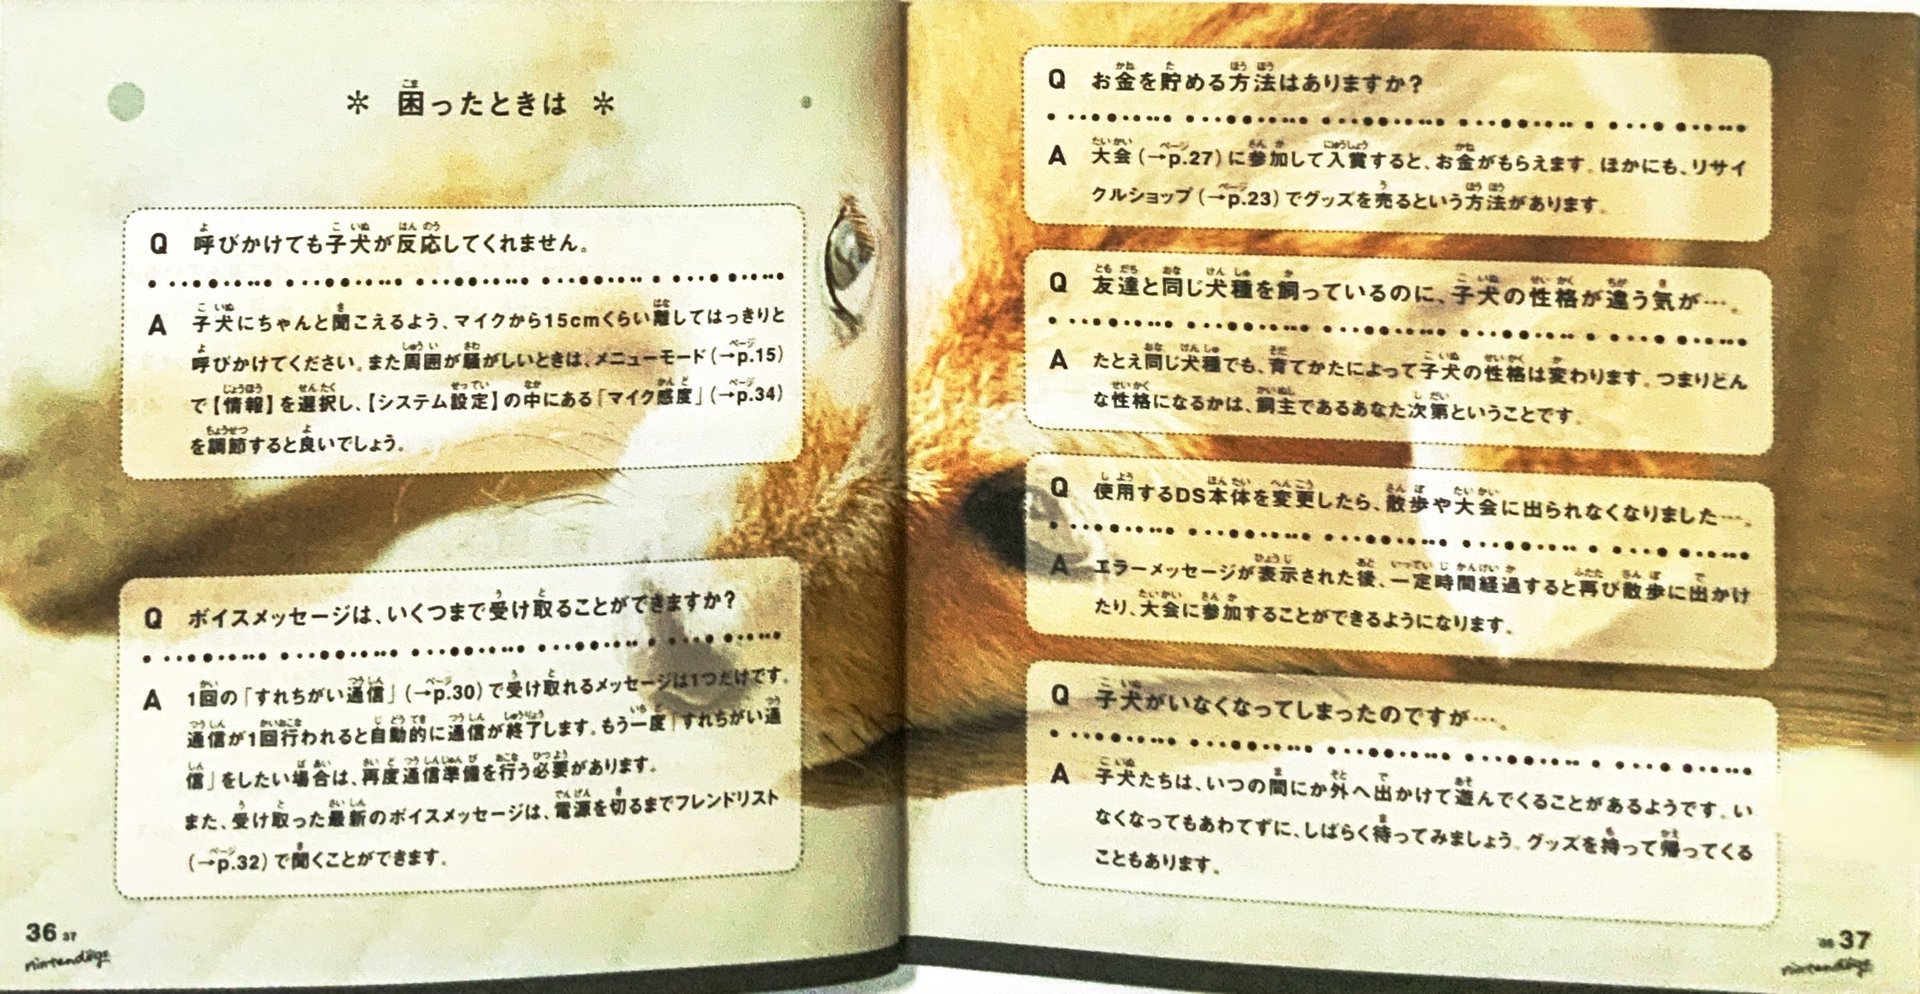 ✻ 困ったときは ✻
Q 呼びかけても子犬が反応してくれません。
A 子犬にちゃんと聞こえるよう、マイクから15cmくらい離してはっきりと
呼びかけてください。また周囲が騒がしいときは、メニューモード(→p.15)
で【情報】を選択し、【システム設定】の中にある「マイク感度」(→p.34)
を調節すると良いでしょう。
Q ボイスメッセージは、いくつまで受け取ることができますか?
A 1回の「すれちがい通信」(→p.30)で受け取れるメッセージは1つだけです。
通信が1回行われると自動的に通信が終了します。もう一度「すれちがい通
信」をしたい場合は、再度通信準備を行う必要があります。
また、受け取った最新のボイスメッセージは、電源を切るまでフレンドリスト
(→p.32)で聞くことができます。
36 37
nintendogs
Q お金を貯める方法はありますか?
A 大会(→p.27)に参加して入賞すると、お金がもらえます。ほかにも、リサイ
クルショップ(→p.23)でグッズを売るという方法があります。
Q 友達と同じ犬種を飼っているのに、子犬の性格が違う気が…。
A たとえ同じ犬種でも、育てかたによって子犬の性格は変わります。つまりどん
な性格になるかは、飼主であるあなた次第ということです。
Q 使用するDS本体を変更したら、散歩や大会に出られなくなりました…。
A エラーメッセージが表示された後、一定時間経過すると再び散歩に出かけ
たり、大会に参加することができるようになります。
Q 子犬がいなくなってしまったのですが…。
A 子犬たちは、いつの間にか外へ出かけて遊んでくることがあるようです。い
なくなってもあわてずに、しばらく待ってみましょう。グッズを持って帰ってくる
こともあります。
36 37
nintendogs